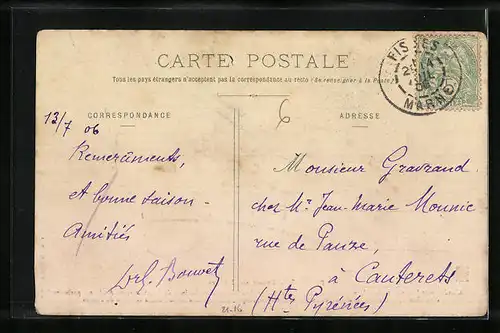 CARTE POSTALE
Tous les pays étrangers n'acceptent pas la correspondance au recto (Se renseigner à la Poste)
CORRESPONDANCE
13/7 06
Remerciments,
et bonne saison -
Amitiés
Bouvet
6
ADRESSE
Monsieur Gravrand
chez Mr Jean-Marie Mounic
rue de
à Cauterets
(Htes Pyrénées)
MARNE